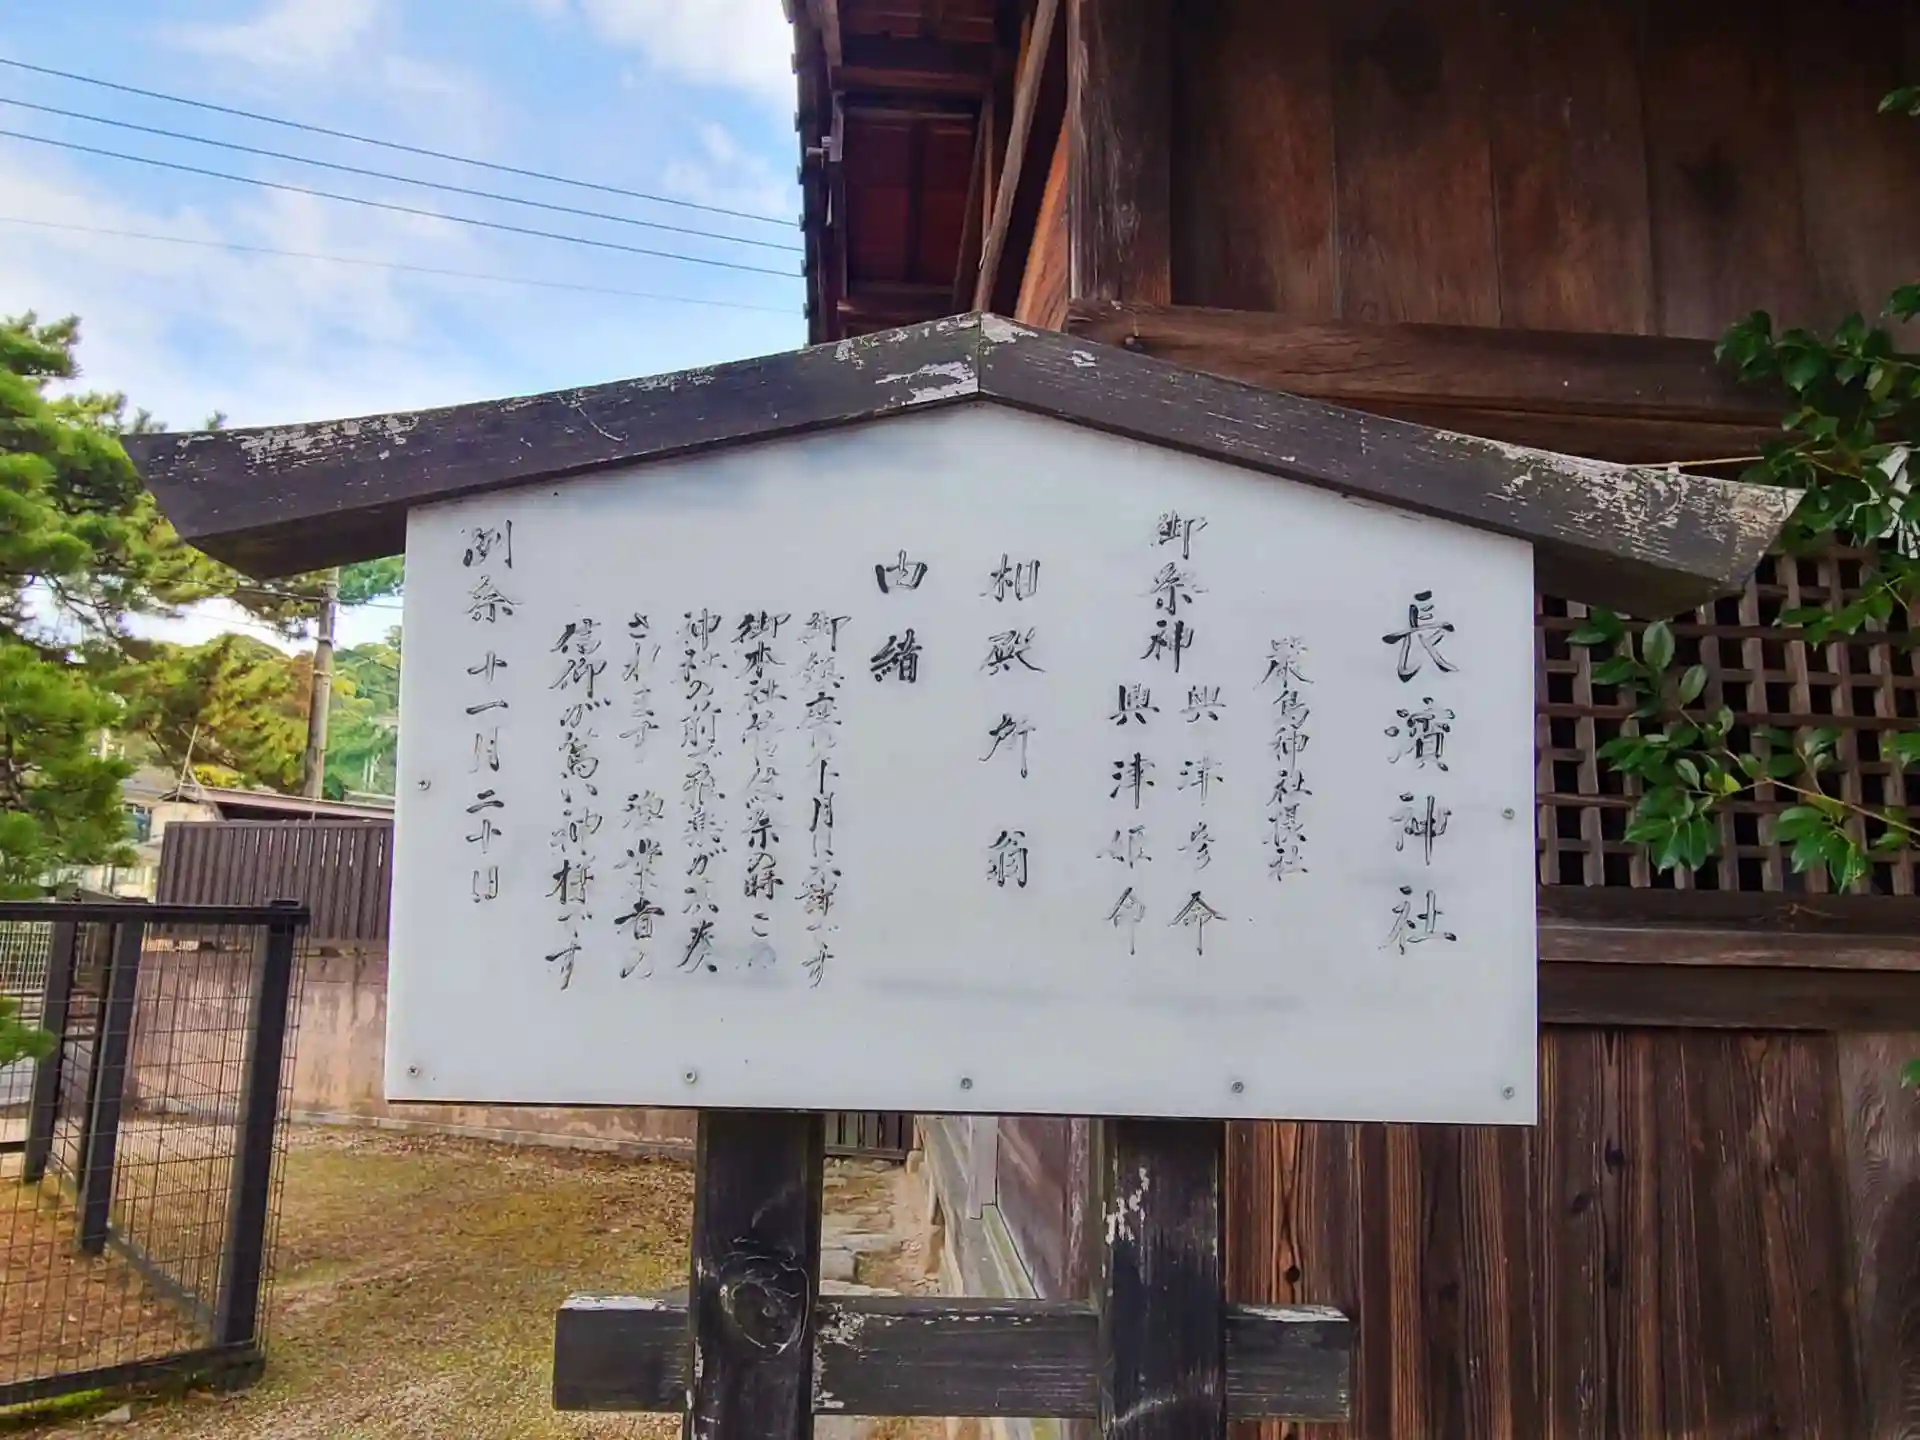 長濱神社
厳島神社摂社
御祭神 興津彦命
興津姫命
相殿 所翁
由緒
御鎮座年月日不詳です
御本社管絃祭の時この
神社の前で管絃が演奏
されます 漁業者の
信仰が篤い神様です
例祭 十一月二十日